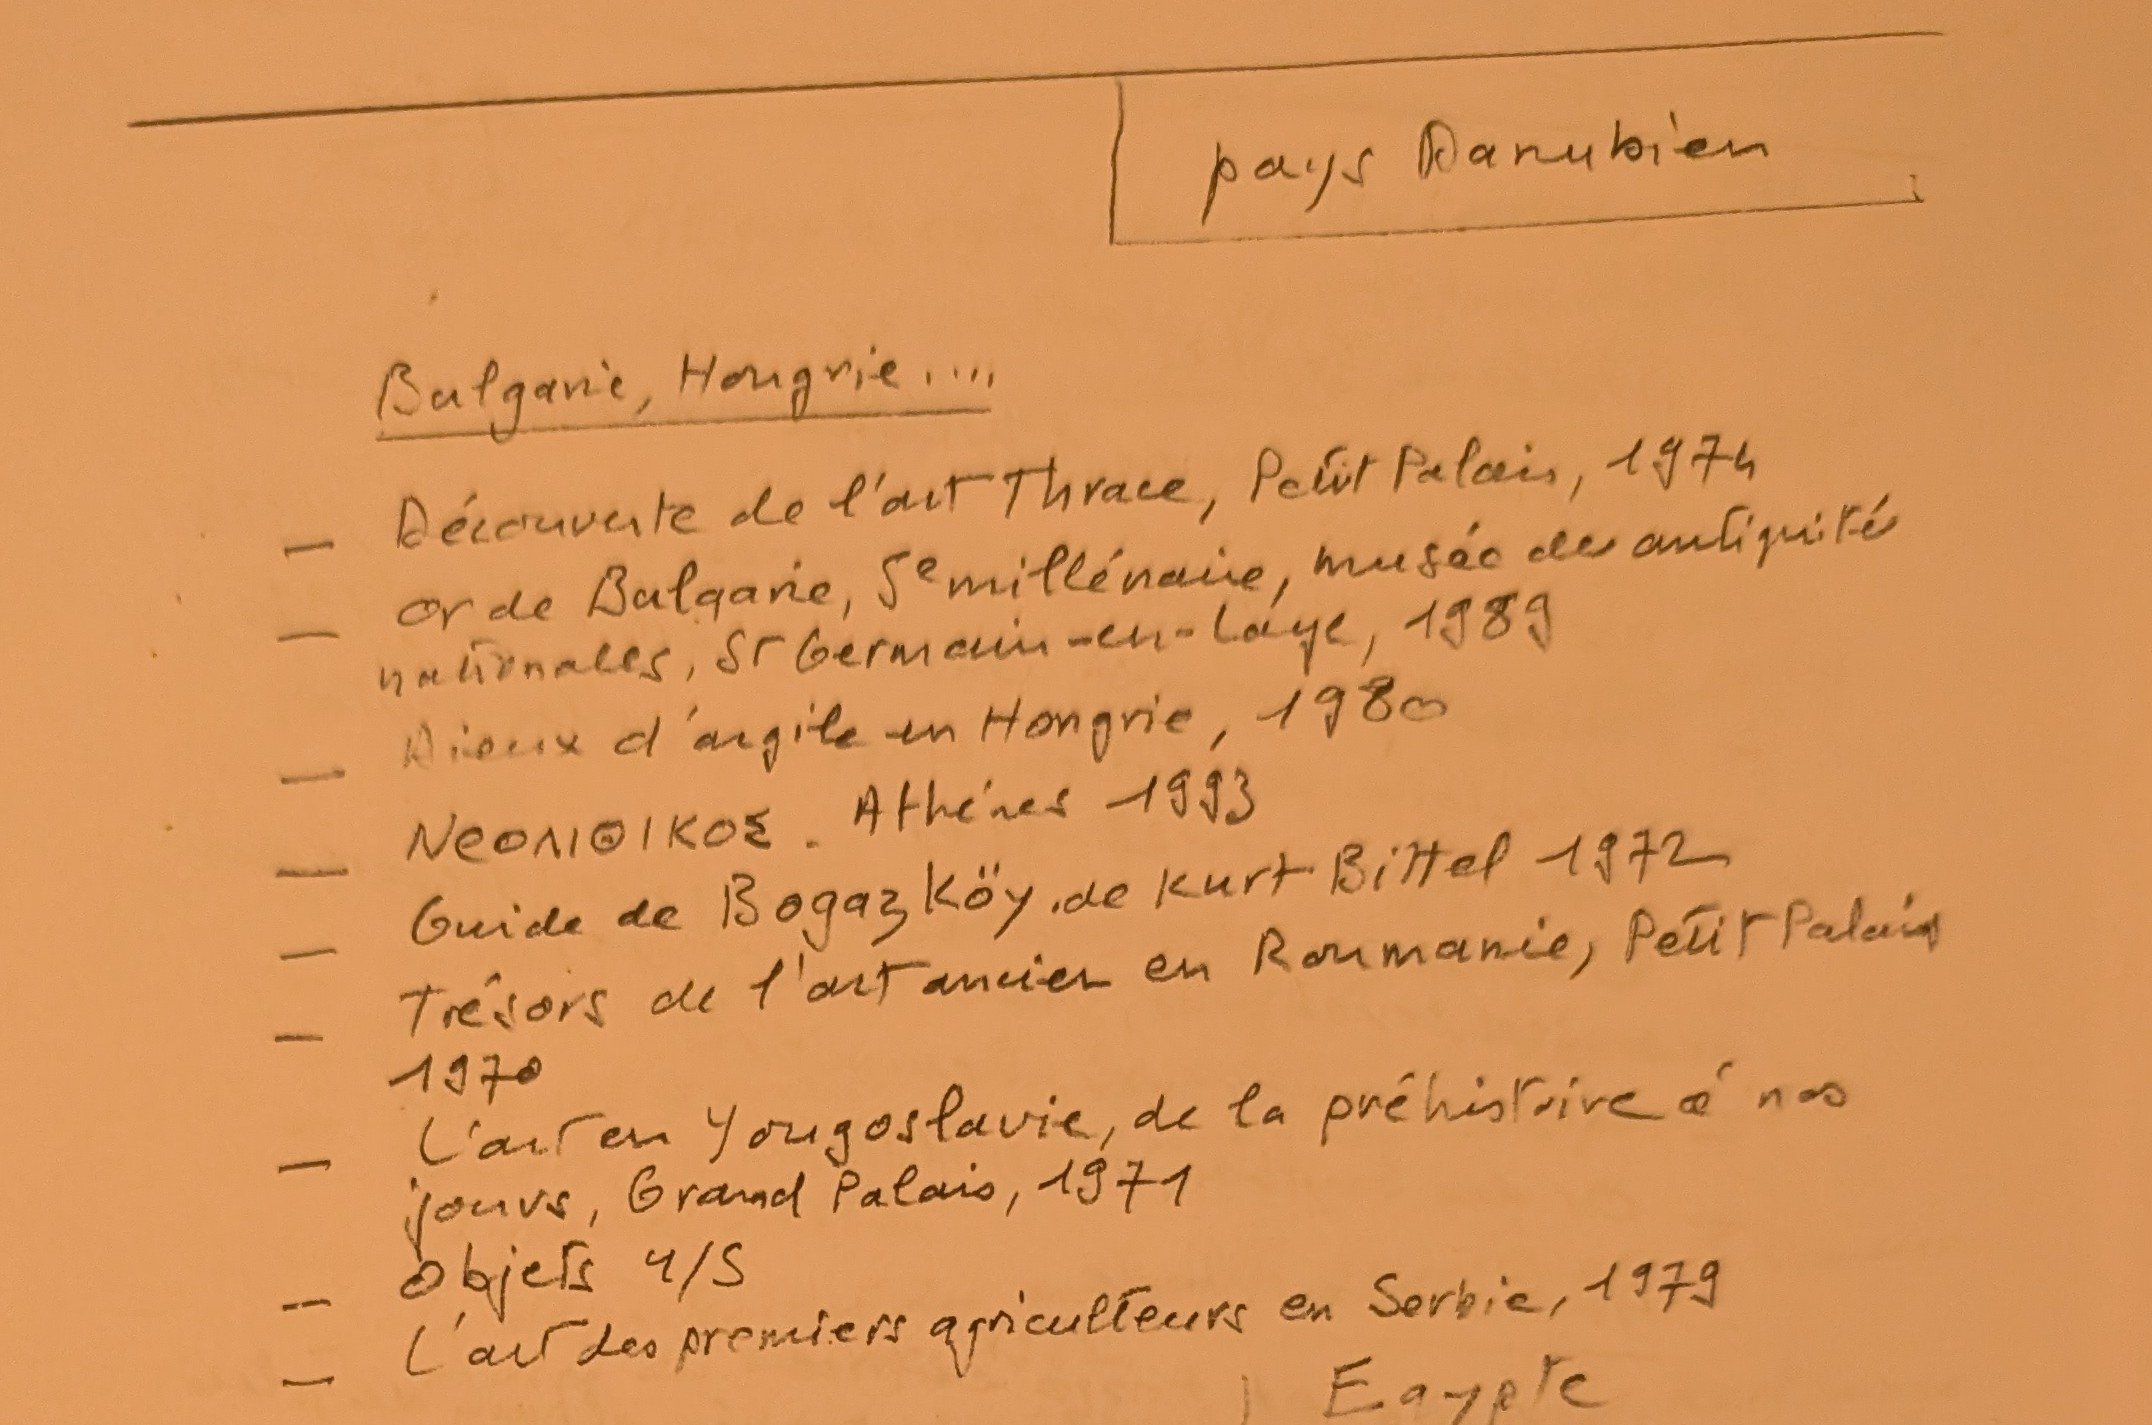 pays Danubien
Bulgarie, Hongrie....
— Découverte de l'art Thrace, Petit Palais, 1974
— or de Bulgarie, 5e millénaire, musée des antiquités
nationales, St Germain-en-Laye, 1989
— Dieux d'argile en Hongrie, 1980
— ΝΕΟΛΙΘΙΚΟΣ. Athénes 1993
— Guide de Bogazköy. de Kurt Bittel 1972
— Trésors de l'art ancien en Roumanie, Petit Palais
1970
— L'art en Yougoslavie, de la préhistoire á nos
jours, Grand Palais, 1971
-- Objets 4/5
— L'art des premiers agriculteurs en Serbie, 1979
Egypte